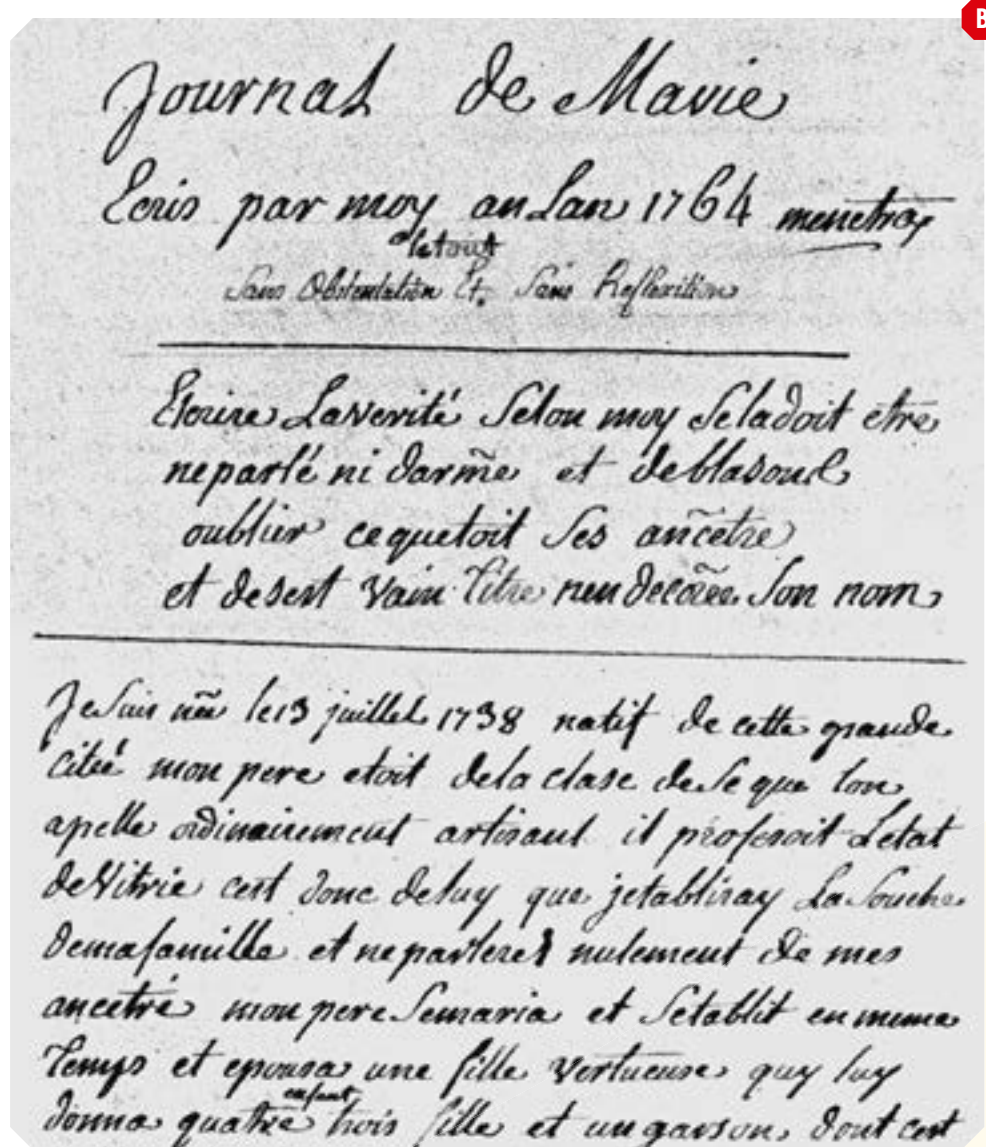 B
Journal de Mavie
Ecris par moy an Lan 1764 menetra
le tout
Sans Obstentation Et. Sans Reflexition
Ecrire Laverité Selon moy Seladoit etre
neparlé ni darme et deblasond
oublier cequetoit Ses ancetre
et desert vain Titre neudecorée Son nom
JeSuis née le 13 juillet 1738 natif de cette grande
Citée mon pere etoit dela clase deSeque lon
apelle ordinairement artisant il profesoit Letat
deVitrie cest donc deluy que jetabliray LaSouche
demafamille et neparlerel nulement de mes
ancetre mon pere Semaria et Setablit en meme
Temps et epousa une fille Vertueuse quy luy
enfant
donna quatre trois fille et un garson dont cest